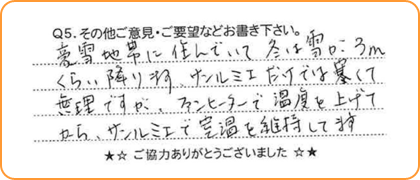 Q5. その他ご意見・ご要望などお書き下さい。
豪雪地帯に住んでいて 冬は雪が3m
くらい降ります サンルミエだけでは寒くて
無理ですが、ファンヒーターで温度を上げて
から、サンルミエで室温を維持してます
★☆ ご協力ありがとうございました ☆★